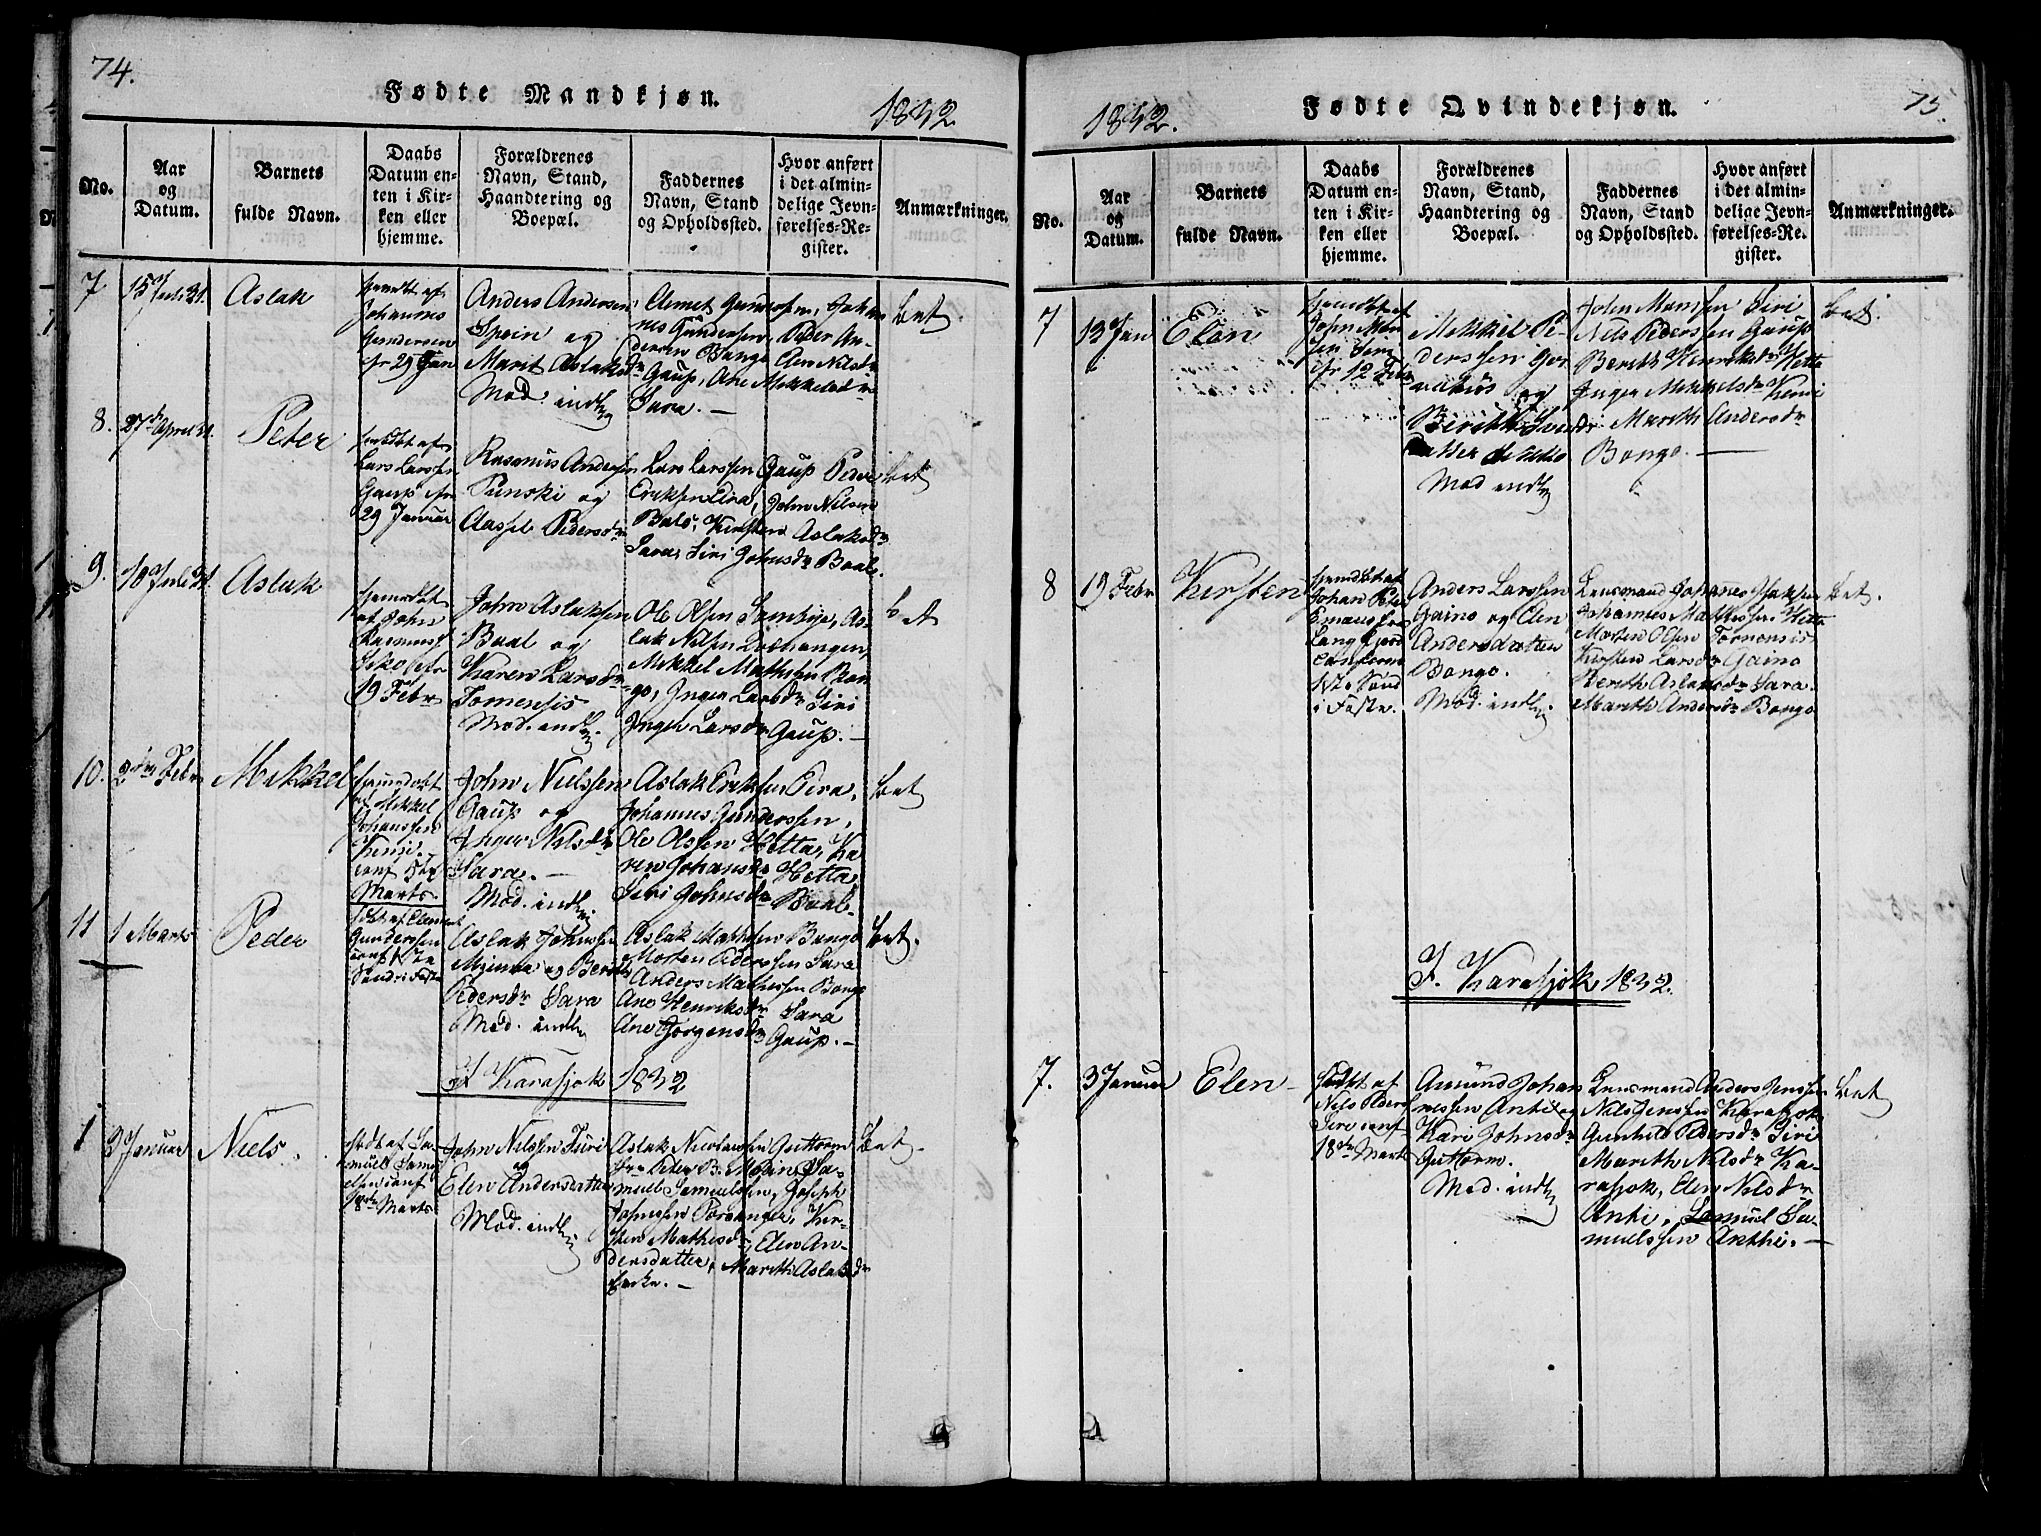 74.
Fødte Mandkjøn.
1832
No.
Aar
og
Datum.
Barnets
fulde Navn.
Daabs
Datum en-
ten i Kir-
ken eller
hjemme.
Forældrenes
Navn, Stand,
Haandtering og
Boepæl.
Faddernes
Navn, Stand
og Opholdssted.
Hvor anført
i det almin-
delige Jevn-
førelses-Re-
gister.
Anmærkninger.
7
15 Juli 31.
Aslak
hjemdbt af
Johannes
Gundersen
29 Jan
Anders Andersen
Spein og
Marit Aslaksd
Mod. indl
Clemet Gundersen, Johan
nes Gundersen, Peder An-
dersen Bango Elen Nilsdr
Gaup, Ane Mikkelsdr
Sara. —
bat.
8.
27de April 31.
Peter
hjemdbt af
Lars Larsen
Gaup
29 Januar
Rasmus Andersen
Punski og
Aassel Pedersdr
Lars Larssen Gaup Peder
Eriksen Eira, John Nilsen
Bals, Kirsten Aslaksdr
Sara, Siri Johnsdr Baal.
bat
9.
10 Juli 31.
Aslak
hjemdbt
af John
Rasmuss
Siko
19 Febr
John Aslaksen
Baal og
Karen Larsdr
Tornensis
Mod. indl.
Ole Olsen Somby, As-
lak Nilsen
Mikkel Mathisen Ban
go, Inger Larsdr Siri
Inger Larsdr Gaup. —
bat
10.
2den Febr
Mikkel
hjemdbt
af Mikkel
Johanssen
Kemi
conf 1ste
Marts.
John Nielssen
Gaup og
Inger Nilsdr
Sara. —
Mod. indl.
Aslak Eriksen Eira,
Johannes Gunderssen,
Ole Olssen Hetta, Ka
ren Johansdr Hetta,
Siri Johnsdr Baal.
bat
11
1 Marts
Peder
hdbt af Clement
Gunderssen
conf 1ste
Sønd i Faste
Aslak Johnssen
og Berith
Pedersdr Sara
Mod. indl
Aslak Mathisen Bango
Morten Pederssen Sara
Anders Mathissen Bango
Ane Henriksdr Sara
Ane Jørgensdr Gaup. —
bat.
I Karasjok 1832
1
3 Januar
Niels.
hdbt af Sa
muel Samu
elsen conf
18de Marts
John Nilssen Turi
og
Elen Andersdatter
Mod. indl
Aslak Nicolaissen Guttorm
Peter B. Sa-
muel Samuelssen, Joseph
Johnssen Porsanger, Kir-
sten Mathisdr, Elen An-
dersdatter, Marith Aslaksdr
bat.
75.
1832.
Fødte Qvindekjøn.
No.
Aar
og
Datum.
Barnets
fulde Navn.
Daabs
Datum en-
ten i Kir-
ken eller
hjemme.
Forældrenes
Navn, Stand,
Haandtering og
Boepæl.
Faddernes
Navn, Stand
og Opholdssted.
Hvor anført
i det almin-
delige Jevn-
førelses-Re-
gister.
Anmærkninger.
7
12 Jan
Elen
hjemdbt af
John
12 Febr
Mikkel Pe-
derssen
og
Berith
Mod indl
John Monsen Siri
Nils Pederssen Gaup
Berith Henriksdr Hetta
Inger Mikkelsdr Kemi
Marith Andersdr
Bango. —
bat.
8
19 Febr
Kirsten
hjemdbt af
Johan Peter
Emaus fra
Langfjord
conf
1ste Sønd
i Faste.
Anders Larssen
Gaino og Elen
Andersdatter
Bango.
Mod. indl.
Lensmand Johannes Isaksen
Johannes Mathissen Hetta
Morten Olsen Tornensis
Kirsten Larsdr Gaino
Berith Aslaksdr Sara.
Marith Andersdr Bango
bat.
I. Karasjok 1832.
7.
3 Januar
Elen
hdbt af
Nils Peders
Siri conf
18de Marts
Amund Johan
nessen Anti og
Kari Johnsdr
Guttorm.
Mod. indl
Lensmand Anders Jenssen
Nils Jenssen Karasjok
Gunhild Pedersdr Siri
Marith Nilsdr Ka-
rasjok, Elen Nilsdr
Anti, Samuel Sa-
muelssen Anthi. —
bat